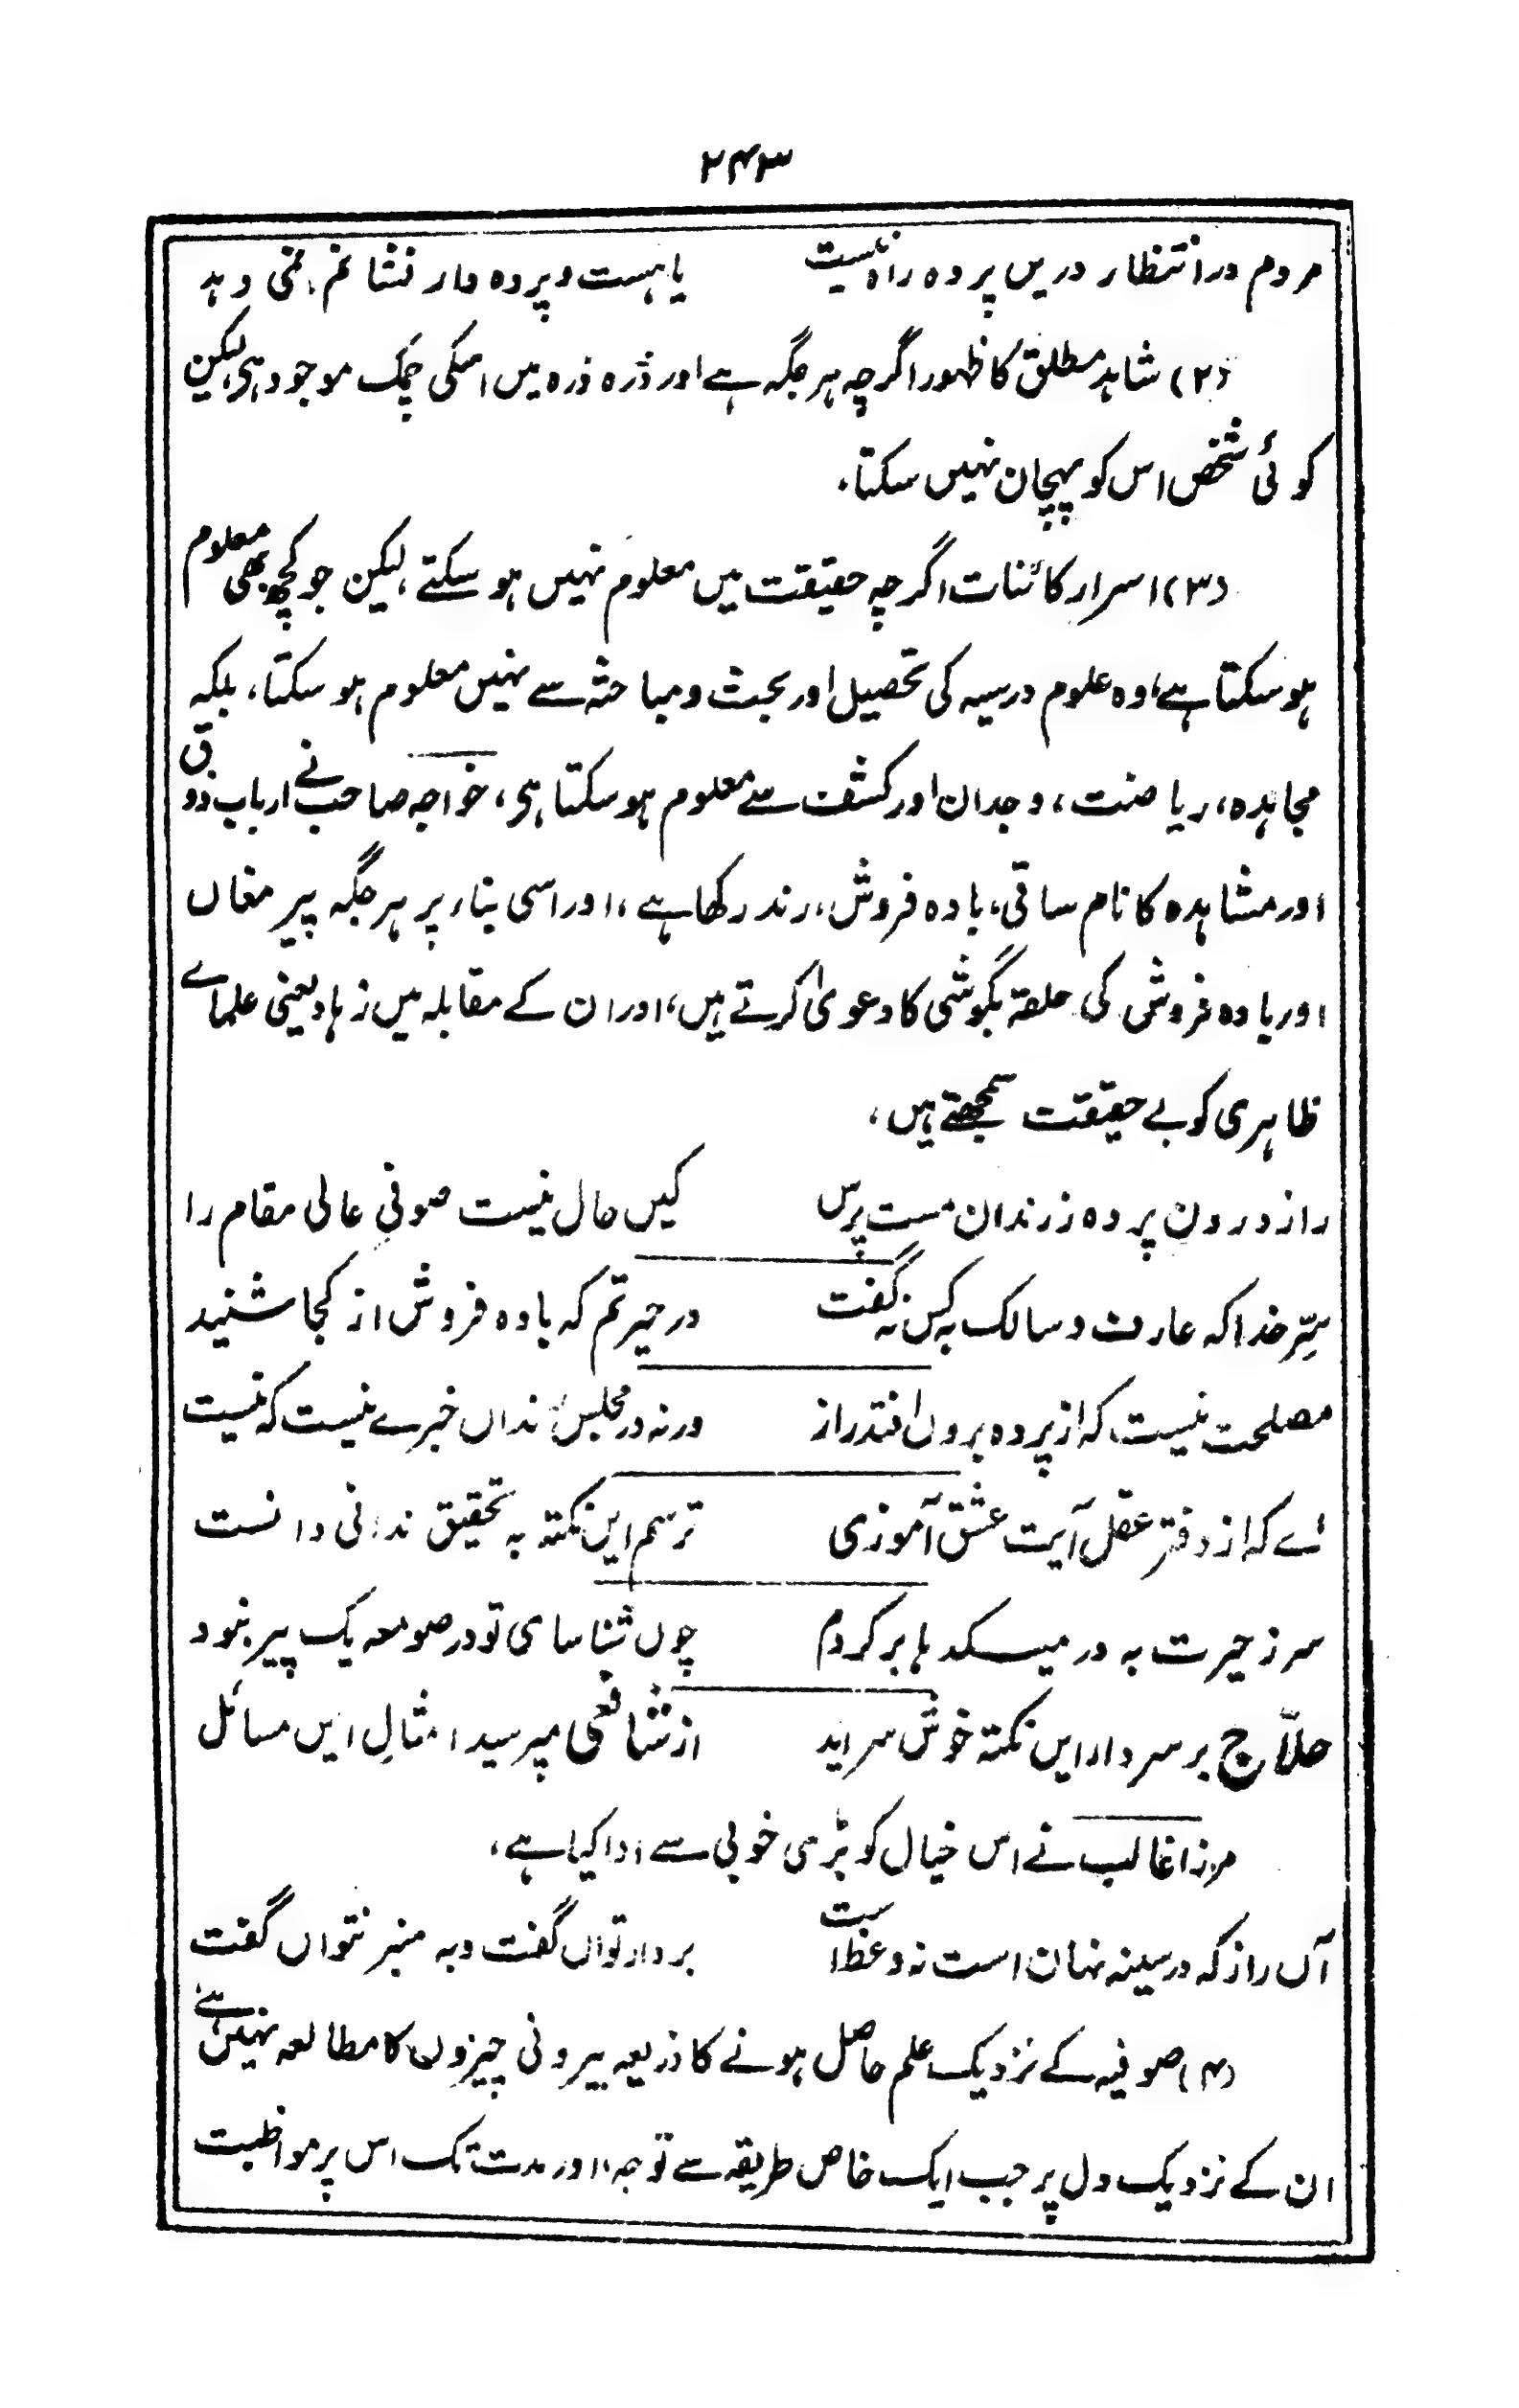 ۲۴۳
مردم در انتظار دریں پردہ راہ نیست یا ہست و پردہ دار نشانم نمی دہد
(۲) شاہد مطلق کا ظہور اگرچہ ہر جگہ ہے اور ذرہ ذرہ میں اسکی چمک موجود ہی لیکن
کوئی شخص اس کو پہچان نہیں سکتا.
(۳) اسرار کائنات اگرچہ حقیقت میں معلوم نہیں ہو سکتے، لیکن جو کچھ بھی معلوم
ہو سکتا ہے، وہ علوم درسیہ کی تحصیل اور بحث و مباحثہ سے نہیں معلوم ہو سکتا، بلکہ
مجاہدہ، ریاضت، وجدان اور کشف سے معلوم ہو سکتا ہی، خواجہ صاحب نے ارباب ذوق
اور مشاہدہ کا نام ساقی، بادہ فروش، رند رکھا ہے، اور اسی بناء پر ہر جگہ پیر مغاں
اور بادہ فروش کی حلقہ بگوشی کا دعویٰ کرتے ہیں، اور ان کے مقابلہ میں زہاد یعنی علماے
ظاہری کو بے حقیقت سمجھتے ہیں،
راز درون پردہ ز رندان مست پرس کیں حال نیست صوفی عالی مقام را
سِرِّ خدا کہ عارف و سالک بہ کس نہ گفت در حیرتم کہ بادہ فروش از کجا شنید
مصلحت نیست کہ از پردہ بروں افتد راز ورنہ در مجلس رنداں خبرے نیست کہ نیست
اے کہ از دفتر عقل آیت عشق آموزی ترسم این نکتہ بہ تحقیق ندانی دانست
سر ز حیرت بہ در میکدہا بر کردم چوں شناسای تو در صومعہ یک پیر نبود
حلاّج بر سر دار ایں نکتہ خوش سراید از شافعی مپرسید امثالِ ایں مسائل
مرزا غالب نے اس خیال کو بڑی خوبی سے ادا کیا ہے،
آں راز کہ در سینہ نہان است نہ وعظ است بر دار تواں گفت و بہ منبر نتواں گفت
(۴) صوفیہ کے نزدیک علم حاصل ہونے کا ذریعہ بیرونی چیزوں کا مطالعہ نہیں ہے
ان کے نزدیک دل پر جب ایک خاص طریقہ سے توجہ اور مدت تک اس پر مواظبت